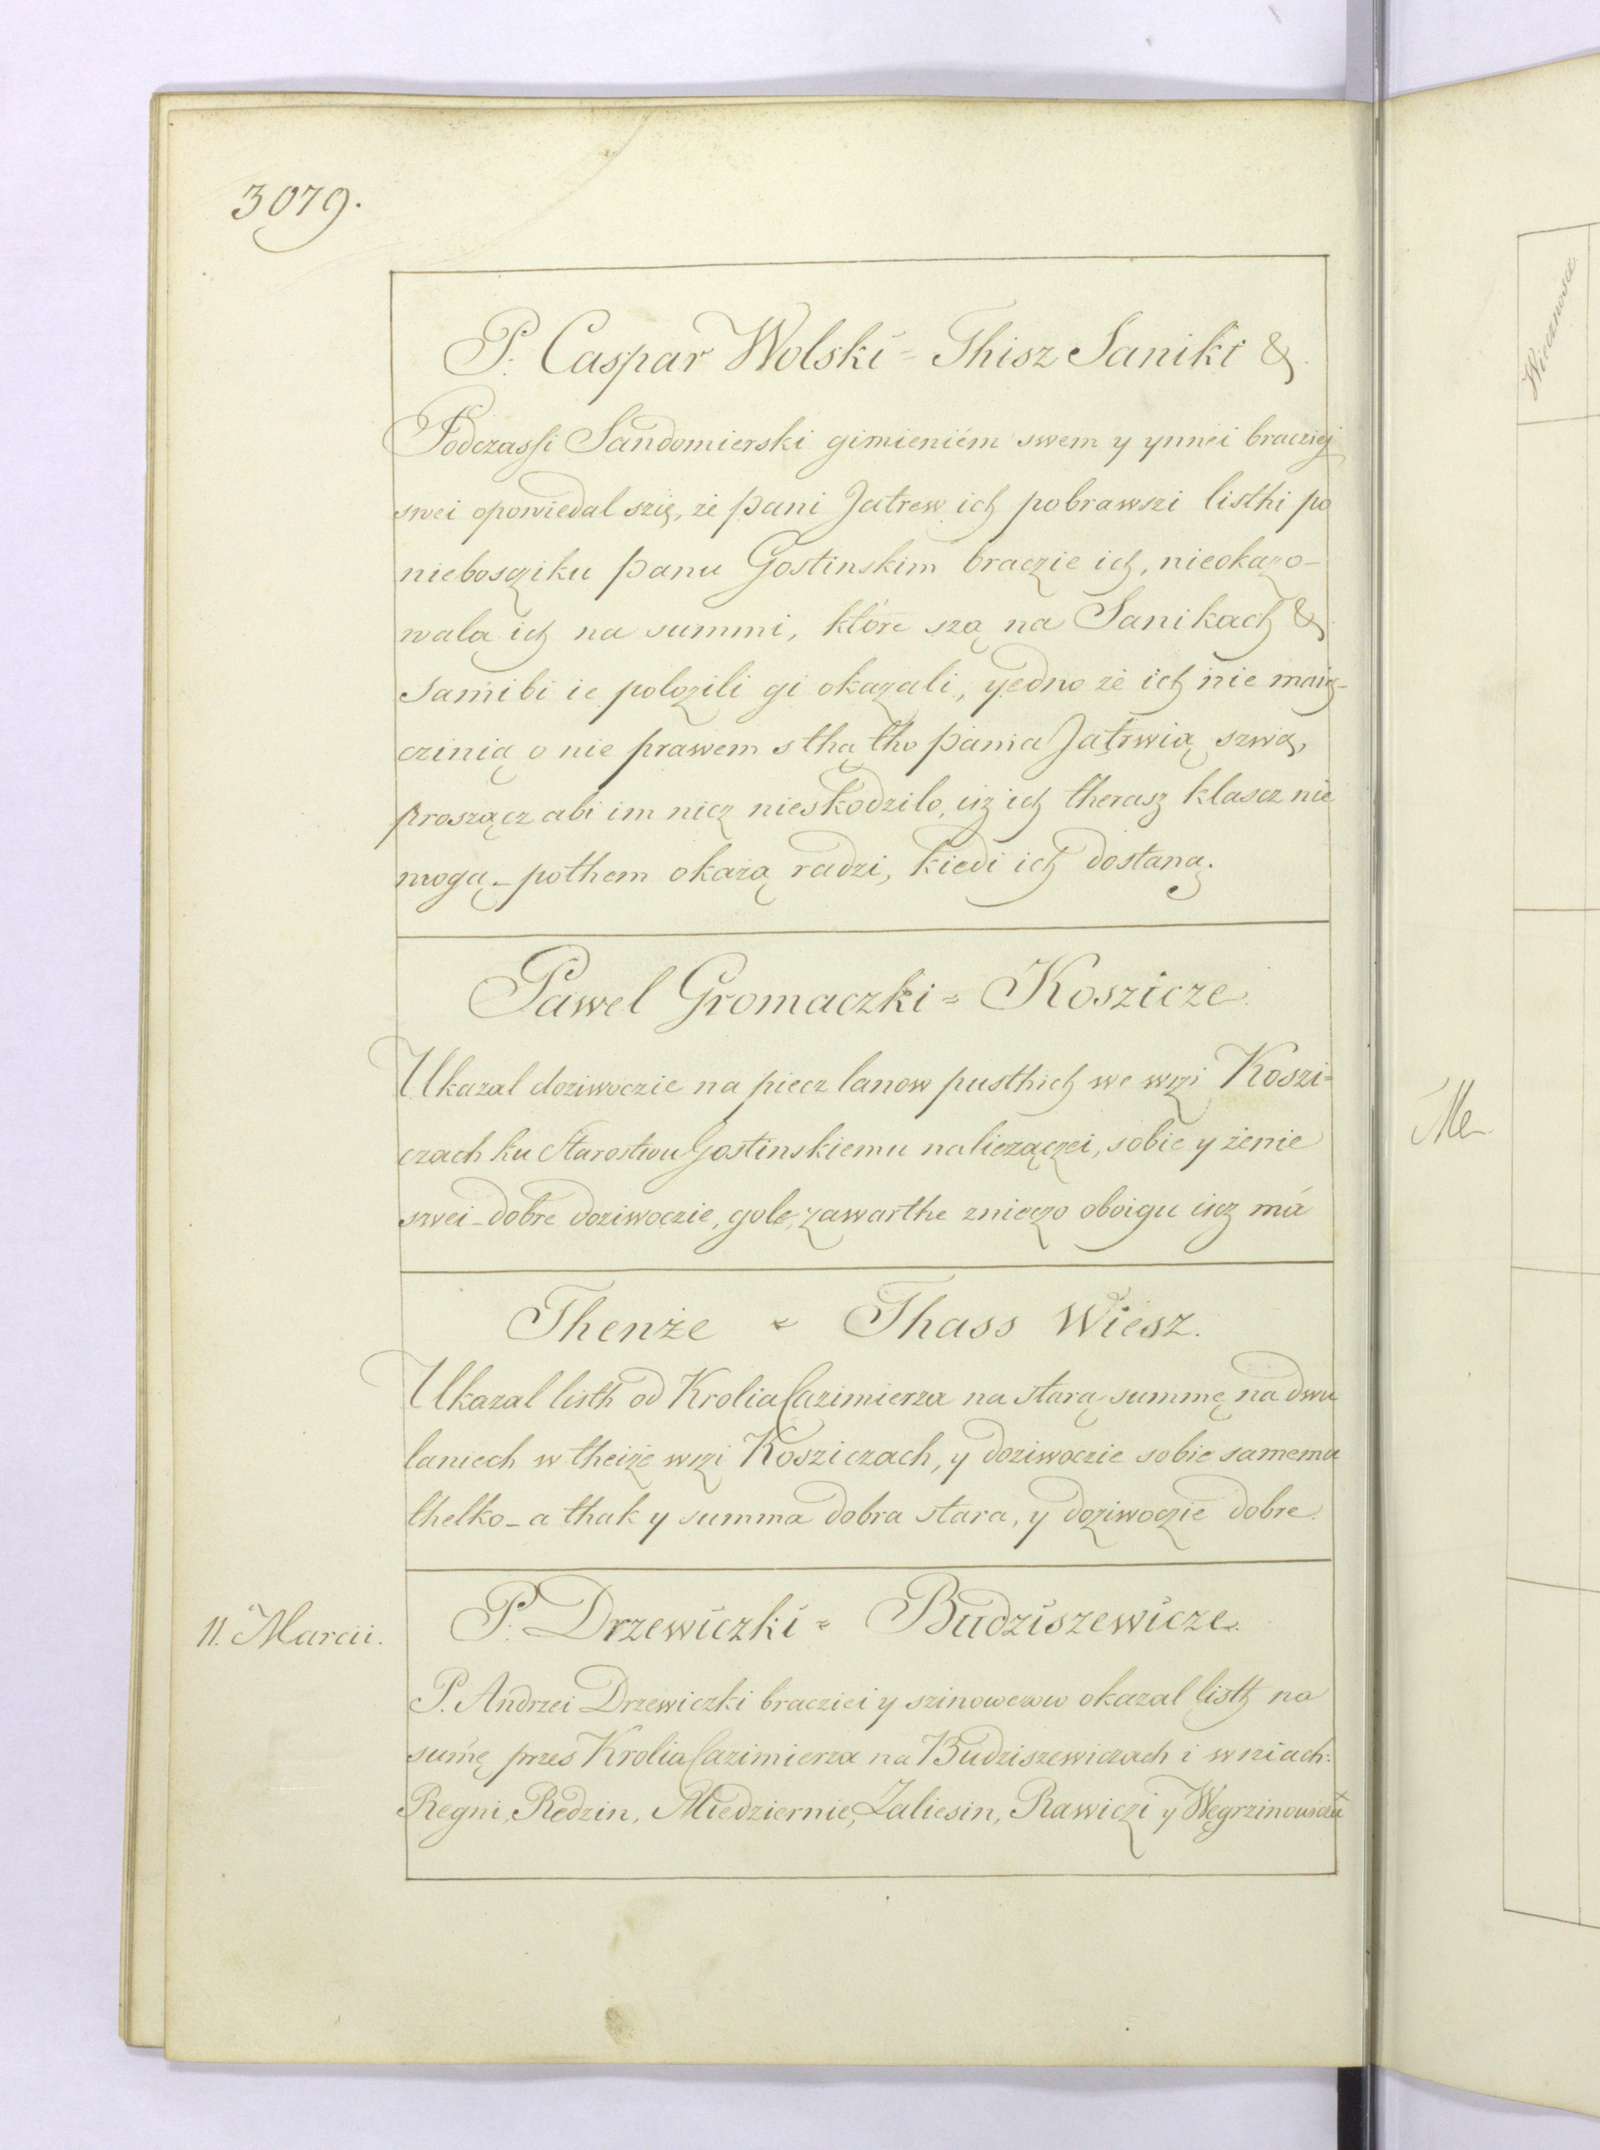 3079.
P. Caspar Wolski = Thisz Saniki &.
Podczassi Sandomierski gimieniém swem y ynnei bracziej
swei opowiedal szię, że pani Jatrew ich pobrawszi listhi po
nieboscziku panu Gostinskim braczie ich, nieokazo-
wala ich na summi, które szą na Sanikach &.
Sami bi ie polozili gi okazali, yedno że ich nie maią-
czinią o nie prawem s thą tho pania Jatrwią szwą,
proszącz abi im nicz nieskodzilo, iiz ich therasz klascz nie
mogą - pothem okażą radzi, kiedi ich dostaną.
Pawel Gromaczki = Koszicze.
Ukazal doziwoczie na piecz lanow pusthich we wzi Koszi=
czach ku Starostwu Gostinskiemu naliezączei, sobie y żenie
szwei - dobre doziwoczie, gole, zawarthe zniczo oboigu iusz má
Thenże = Thass Wiesz.
Ukazal listh od Krolia Cazimierza na starą summę na dwu
laniech w theiże wzi Kosziczach, y doziwoczie sobie samemu
thelko - a thak y summa dobra stara, y doziwoczie dobre.
11. Marcii.
P. Drzewiczki = Budziszewicze.
P. Andrzei Drzewiczki braciei y szinowcww okazal listh na
sumę przes Krolia Cazimierza na Budziszewiczach i wniach:
Regni, Redzin, Miedziernie, Zaliesin, Rawiczi y Węgrzinowiczu
Wiecznosce
Me